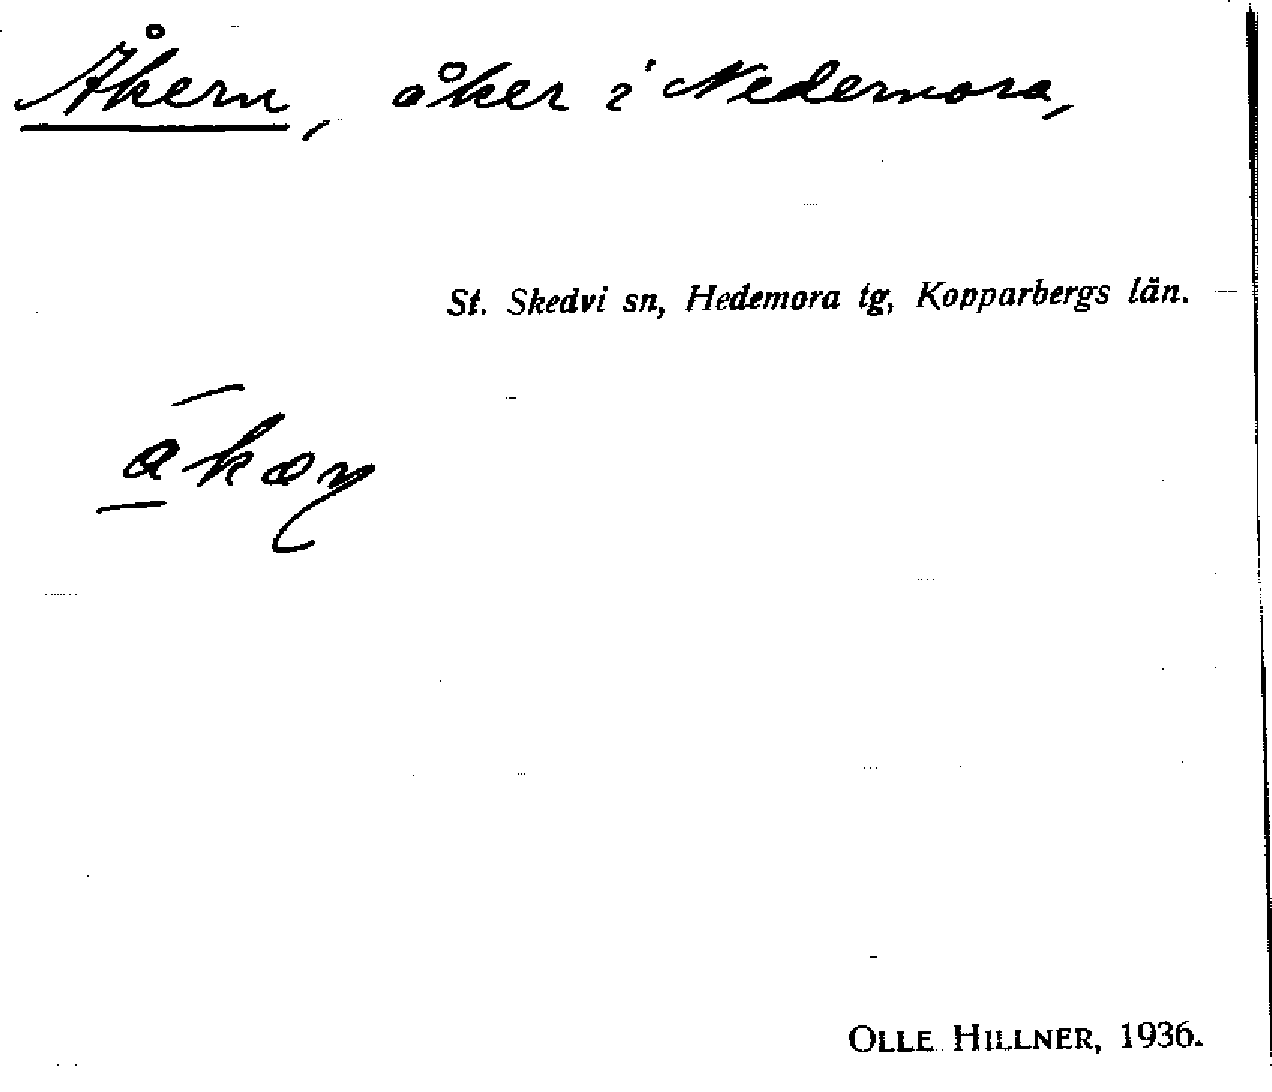 Åkern, åker i Nedernora,
St. Skedvi sn, Hedemora tg, Kopparbergs län.
OLLE HILLNER, 1936.